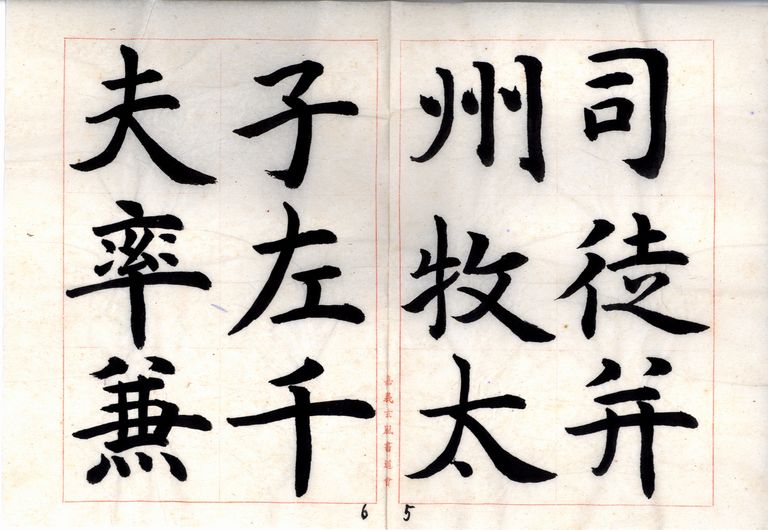 司徒并
州牧太
子左千
夫率兼
嘉義玄風書道會
5
6